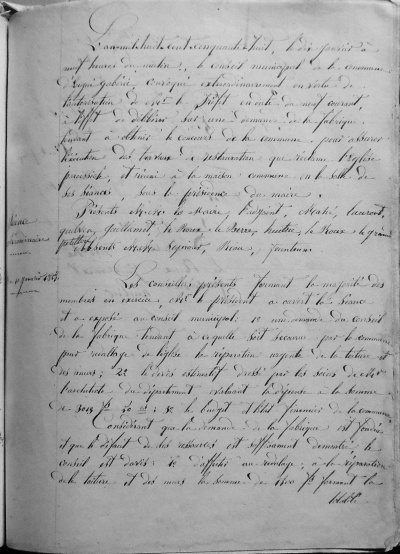 L'an mil huit cent cinquante huit, le dix janvier à
neuf heures du matin, le conseil municipal de la commune
d'Ergué-Gabéric, convoqué extraordinairement en vertu de
l'autorisation de Mr le Préfet en date du neuf courant,
à l'effet de délibérer sur une demande de la fabrique
tendant à obtenir le concours de la commune, pour assurer
l'exécution des travaux de restauration que réclame l'église
paroissiale, s'est réuni à la maison commune au lieu de
ses séances, sous la présidence du maire.
Présents MM. le Maire, l'adjoint, Mahé,
Guillamet, le Roux, le Berre, le Roux, le grand
absents MM.
Séance
extraordinaire
Les conseillers présents formant la majorité des
membres en exercice, Mr le président a ouvert la séance
et a exposé au conseil municipal: 1o une demande du conseil
de la fabrique tendant à ce qu'elle soit secourue par la commune
pour l'église la réparation urgente de la toiture et
des murs; 2o le devis estimatif dressé par les soins de Mr
l'architecte du département évaluant la dépense à la somme
de 3018 fr 50 ct; 3o le budget et l'état financier de la commune
Considérant que la demande de la fabrique est fondée
et que le défaut de ses ressources est suffisamment démontré, le
conseil est d'avis: 1o d'affecter à la réparation
de la toiture et des murs la somme de 1800 fr formant la